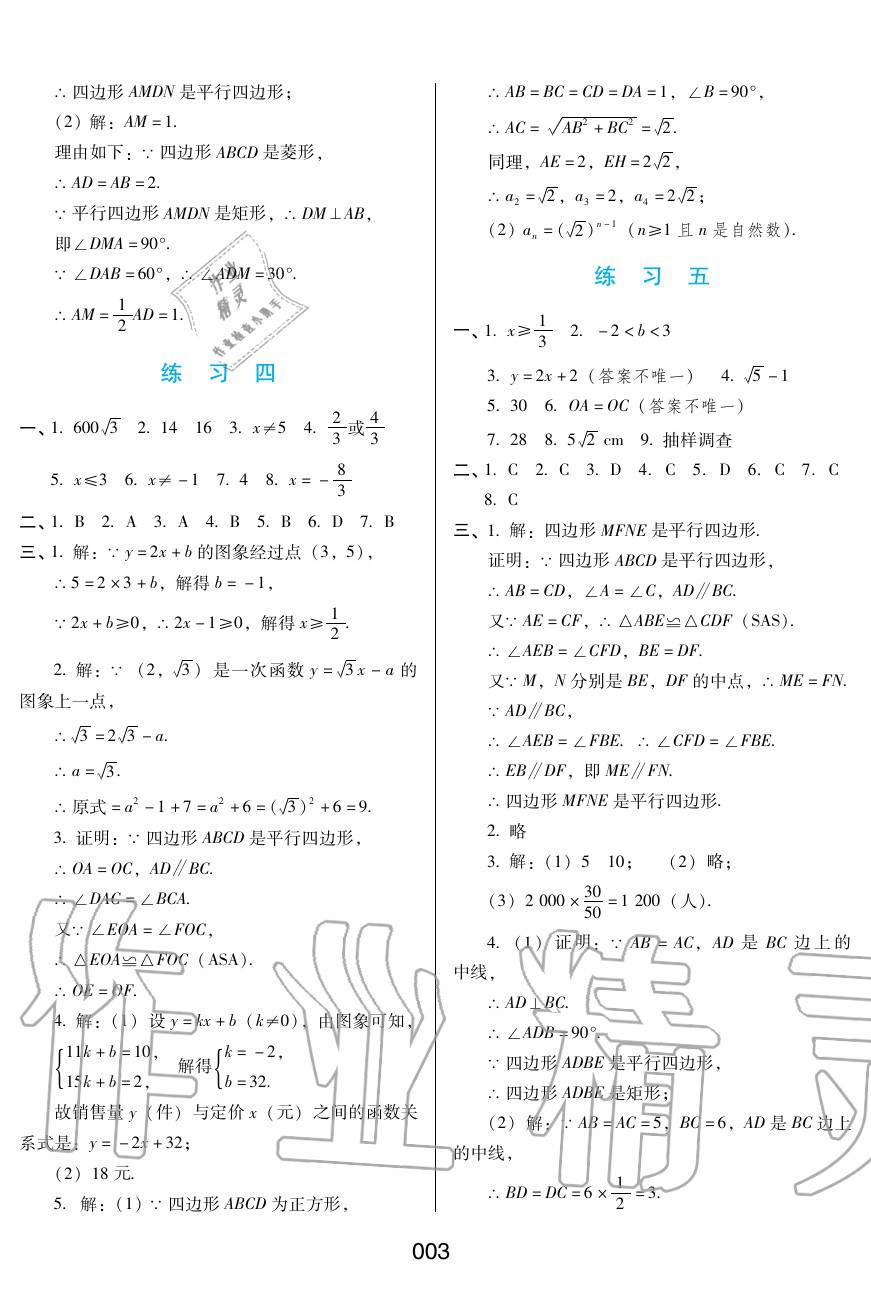 ∴ 四边形 AMDN 是平行四边形；
（2）解：AM = 1.
理由如下：∵ 四边形 ABCD 是菱形，
∴ AD = AB = 2.
∵ 平行四边形 AMDN 是矩形，∴ DM⊥AB，
即∠DMA = 90°.
∵ ∠DAB = 60°，∴ ∠ADM = 30°.
∴ AM = 1/2 AD = 1.
练 习 四
一、1. 600√3 2. 14 16 3. x≠5 4. 2/3 或 4/3
5. x≤3 6. x≠ -1 7. 4 8. x = - 8/3
二、1. B 2. A 3. A 4. B 5. B 6. D 7. B
三、1. 解：∵ y = 2x + b 的图象经过点（3，5），
∴ 5 = 2 × 3 + b，解得 b = -1，
∵ 2x + b≥0，∴ 2x - 1≥0，解得 x≥ 1/2.
2. 解：∵ （2，√3）是一次函数 y = √3 x - a 的
图象上一点，
∴ √3 = 2√3 - a.
∴ a = √3.
∴ 原式 = a² - 1 + 7 = a² + 6 = (√3)² + 6 = 9.
3. 证明：∵ 四边形 ABCD 是平行四边形，
∴ OA = OC，AD∥BC.
∴ ∠DAC = ∠BCA.
又∵ ∠EOA = ∠FOC，
∴ △EOA≌△FOC（ASA）.
∴ OE = OF.
4. 解：（1）设 y = kx + b（k≠0），由图象可知，
{11k + b = 10， 15k + b = 2， 解得 {k = -2， b = 32.
故销售量 y（件）与定价 x（元）之间的函数关
系式是：y = -2x + 32；
（2）18 元.
5. 解：（1）∵ 四边形 ABCD 为正方形，
∴ AB = BC = CD = DA = 1，∠B = 90°，
∴ AC = √(AB² + BC²) = √2.
同理，AE = 2，EH = 2√2，
∴ a₂ = √2，a₃ = 2，a₄ = 2√2；
（2）aₙ = (√2)ⁿ⁻¹（n≥1 且 n 是自然数）.
练 习 五
一、1. x≥ 1/3 2. -2 < b < 3
3. y = 2x + 2（答案不唯一） 4. √5 - 1
5. 30 6. OA = OC（答案不唯一）
7. 28 8. 5√2 cm 9. 抽样调查
二、1. C 2. C 3. D 4. C 5. D 6. C 7. C
8. C
三、1. 解：四边形 MFNE 是平行四边形.
证明：∵ 四边形 ABCD 是平行四边形，
∴ AB = CD，∠A = ∠C，AD∥BC.
又∵ AE = CF，∴ △ABE≌△CDF（SAS）.
∴ ∠AEB = ∠CFD，BE = DF.
又∵ M，N 分别是 BE，DF 的中点，∴ ME = FN.
∵ AD∥BC，
∴ ∠AEB = ∠FBE. ∴ ∠CFD = ∠FBE.
∴ EB∥DF，即 ME∥FN.
∴ 四边形 MFNE 是平行四边形.
2. 略
3. 解：（1）5 10； （2）略；
（3）2 000 × 30/50 = 1 200（人）.
4. （1）证明：∵ AB = AC，AD 是 BC 边上的
中线，
∴ AD⊥BC.
∴ ∠ADB = 90°.
∵ 四边形 ADBE 是平行四边形，
∴ 四边形 ADBE 是矩形；
（2）解：∵ AB = AC = 5，BC = 6，AD 是 BC 边上
的中线，
∴ BD = DC = 6 × 1/2 = 3.
003
作业精灵
作业检查小助手
作业精灵